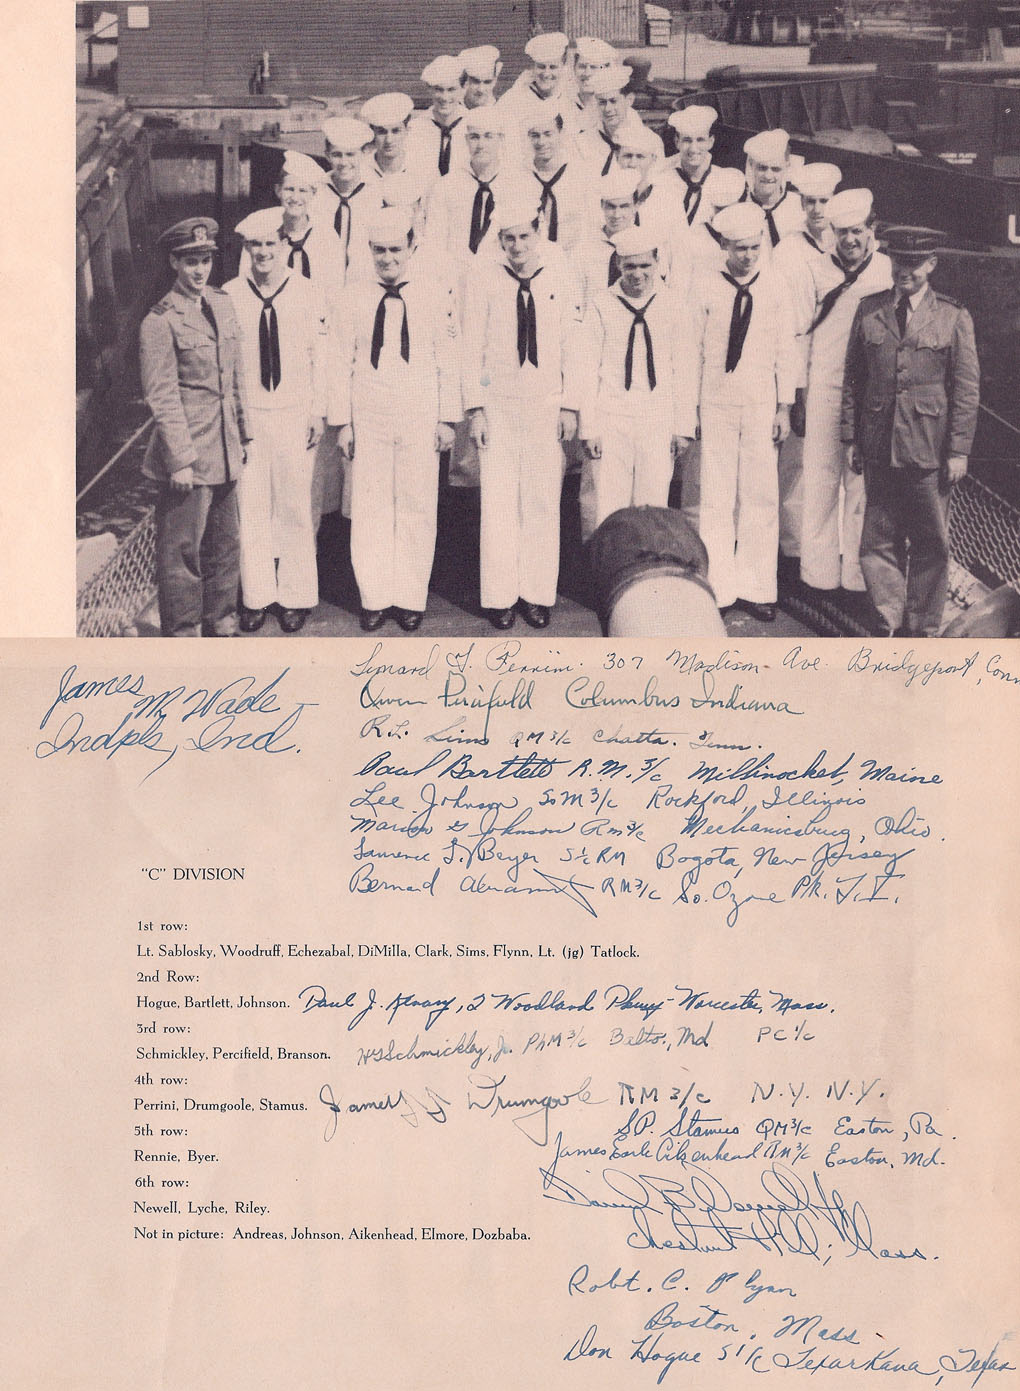 Lenard F. Perrini. 307 Madison Ave. Bridgeport, Conn
James M. Wade
Indpls, Ind.
Owen Percifield Columbus Indiana
R.L. Sims QM 3/c Chatta. Tenn.
Paul Bartlett R.M. 3/c Millinocket, Maine
Lee Johnson SoM 3/c Rockford, Illinois
Marion G Johnson Rm 3/c Mechanicsburg, Ohio.
Beyer S 1/c RM Bogota, New Jersey
Bernard RM 3/c So. Ozone Pk. L.I.
"C" DIVISION
1st row:
Lt. Sablosky, Woodruff, Echezabal, DiMilla, Clark, Sims, Flynn, Lt. (jg) Tatlock.
2nd Row:
Hogue, Bartlett, Johnson. Paul J. 2 Woodland Worcester, Mass.
3rd row:
Schmickley, Percifield, Branson. Schmickley, Jr. PhM 3/c Balto., Md PC 1/c
4th row:
Perrini, Drumgoole, Stamus. James J Drumgoole RM 3/c N.Y. N.Y.
S.P. Stamus QM 3/c Easton, Pa.
5th row:
James Earle Aikenhead RM 3/c Easton, Md.
Rennie, Byer.
6th row:
Newell, Lyche, Riley.
Not in picture: Andreas, Johnson, Aikenhead, Elmore, Dozbaba.
Chestnut Hill, Mass.
Robt. C. Flynn
Boston, Mass
Don Hogue S 1/c Texarkana, Texas